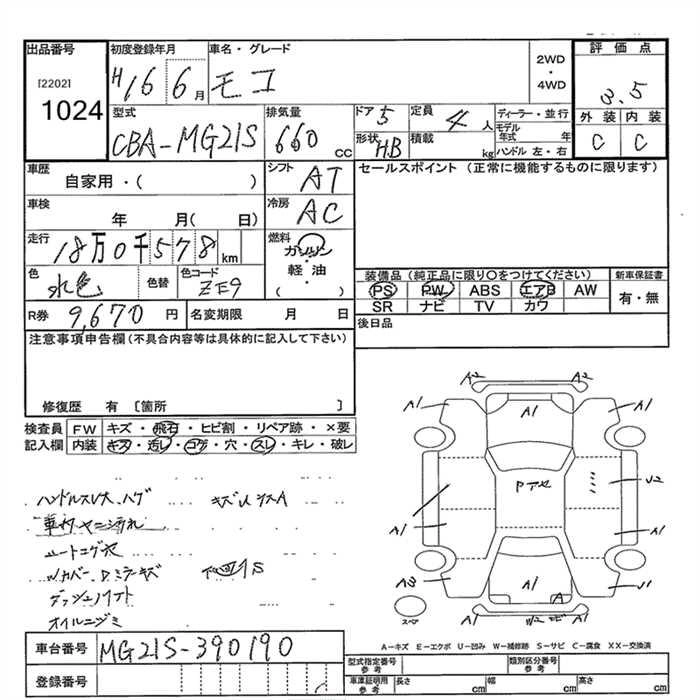 出品番号 初度登録年月 車名・グレード 評価点
[2202] H16 6月 モコ 2WD・4WD 3.5
1024
型式 排気量 ドア 5 定員 4人 ディーラー・並行 外装 内装
CBA-MG21S 660 CC 形状 HB 積載 kg モデル年式 年 C C
ハンドル 左・右
車歴 シフト セールスポイント (正常に機能するものに限ります)
自家用・( ) AT
車検 冷房
年 月( 日) AC
走行 18万0千578km 燃料 ガソリン
軽・油
( )
色 水色 色替 色コード ZE9
装備品 (純正品に限り○をつけてください) 新車保証書
PS PW ABS エアB AW 有・無
SR ナビ TV カワ
R券 9,670円 名変期限 月 日 後日品
注意事項申告欄(不具合内容等は具体的に記入して下さい)
修復歴 有 〔箇所 〕
検査員 FW キズ・飛石・ヒビ割・リペア跡・×要
記入欄 内装 キズ・汚レ・コゲ・穴・スレ・キレ・破レ
ハンドルスレ大、ハゲ
車内ヤニ汚れ
シートコゲ穴
オイルニジミ
A2 A2
A1 A1 A1
Pアセ
A1 U2
A1
A3 A1 U1
A
スペア
A-キズ E-エクボ U-凹み W-補修跡 S-サビ C-腐食 XX-交換済
車台番号 MG21S-390190
登録番号
型式指定番号 参考 類別区分番号 参考
車庫証明用 参考 長さ cm 幅 cm 高さ cm